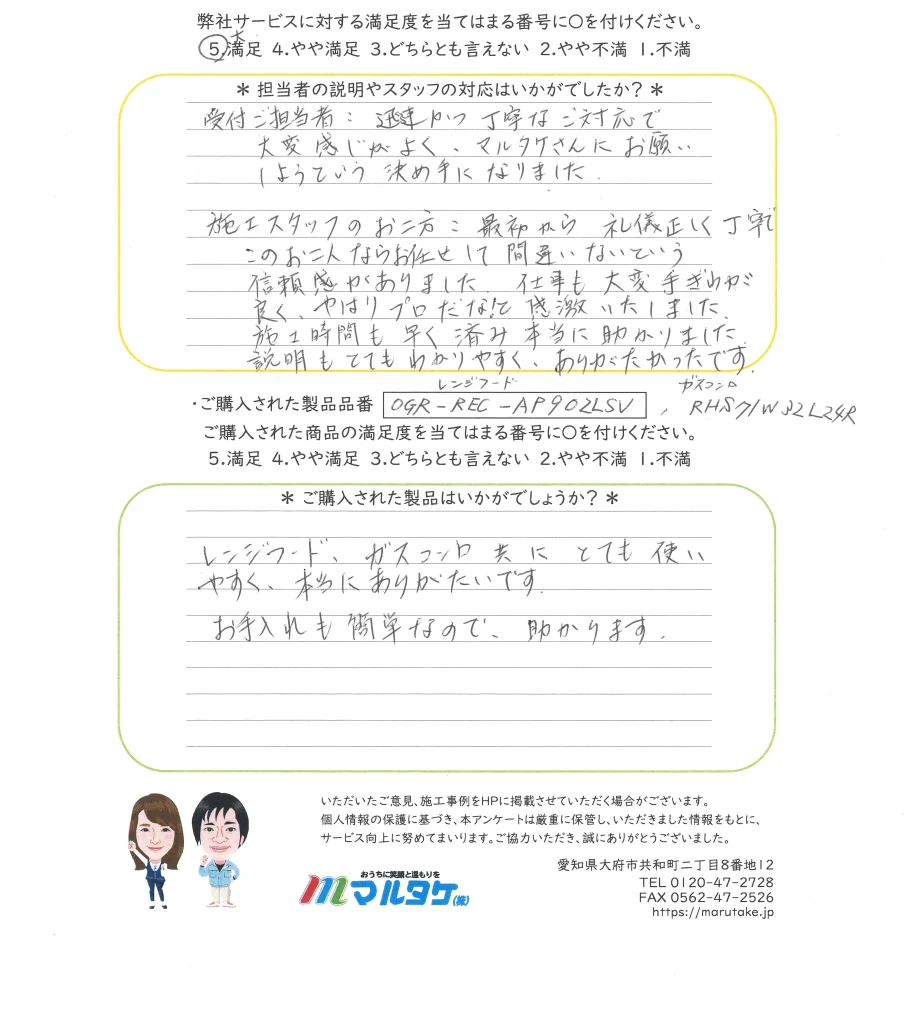 弊社サービスに対する満足度を当てはまる番号に〇を付けください。
大
5.満足 4.やや満足 3.どちらとも言えない 2.やや不満 1.不満
＊担当者の説明やスタッフの対応はいかがでしたか？＊
受付ご担当者：迅速かつ 丁寧なご対応で
大変感じがよく、マルタケさんに お願い
しようという 決め手に なりました.
施工スタッフの お二方：最初から 礼儀正しく丁寧で
このお二人ならお任せして 間違いないという
信頼感がありました. 仕事も 大変 手ぎわが
良く、やはり プロだな!と 感激いたしました.
施工時間も 早く 済み 本当に 助かりました.
説明も とても わかりやすく、ありがたかったです.
レンジフード
ガスコンロ
・ご購入された製品品番 OGR-REC-AP902LSV , RHS71W32L24R
ご購入された商品の満足度を当てはまる番号に〇を付けください。
5.満足 4.やや満足 3.どちらとも言えない 2.やや不満 1.不満
＊ご購入された製品はいかがでしょうか？＊
レンジフード、ガスコンロ 共に とても 使い
やすく、本当に ありがたいです.
お手入れも 簡単なので、助かります.
いただいたご意見、施工事例をHPに掲載させていただく場合がございます。
個人情報の保護に基づき、本アンケートは厳重に保管し、いただきました情報をもとに、
サービス向上に努めてまいります。ご協力いただき、誠にありがとうございました。
おうちに笑顔と温もりを
マルタケ(株)
愛知県大府市共和町二丁目8番地12
TEL 0120-47-2728
FAX 0562-47-2526
https://marutake.jp